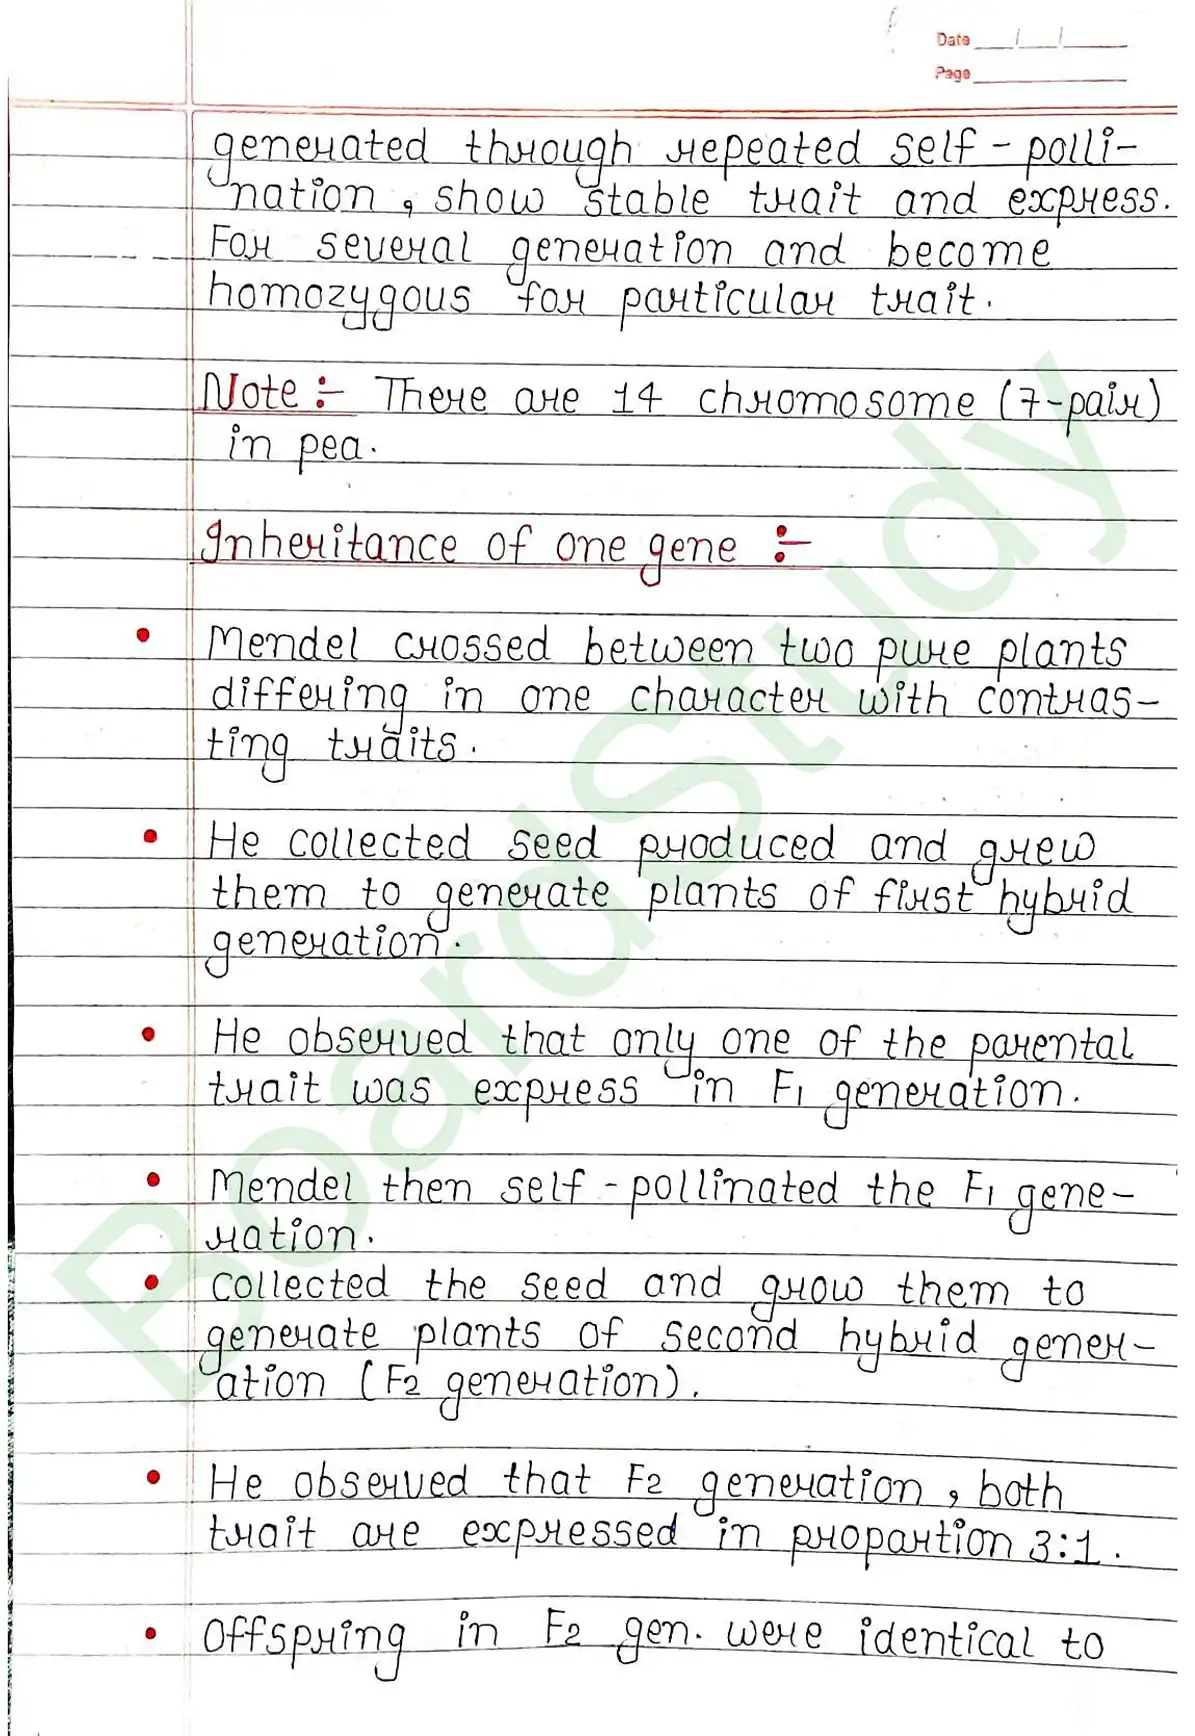 Date
Page
generated through repeated self-polli-
nation, show stable trait and express.
For several generation and become
homozygous for particular trait.
Note :- There are 14 chromosome (7-pair)
in pea.
Inheritance of one gene :-
• Mendel crossed between two pure plants
differing in one character with contras-
ting traits.
• He collected seed produced and grew
them to generate plants of first hybrid
generation.
• He observed that only one of the parental
trait was express in F1 generation.
• Mendel then self-pollinated the F1 gene-
ration.
• Collected the seed and grow them to
generate plants of second hybrid gener-
ation (F2 generation).
• He observed that F2 generation, both
trait are expressed in proportion 3:1.
• Offspring in F2 gen. were identical to
BoardStudy